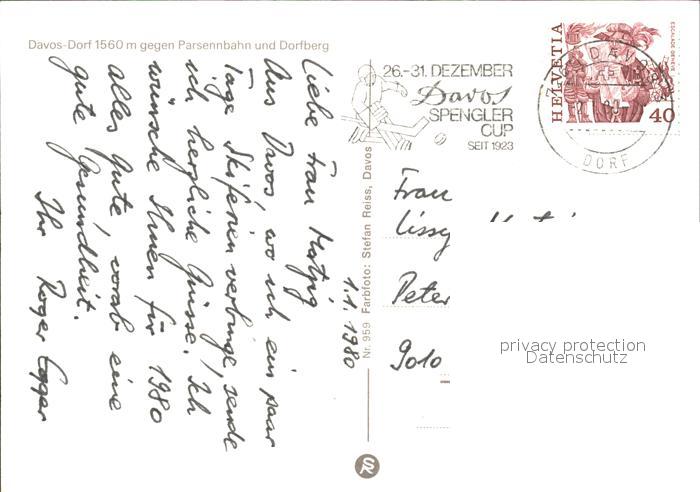 Davos-Dorf 1560 m gegen Parsennbahn und Dorfberg
1.1.1980
Liebe Frau
Aus Davos, wo ich ein paar
Tage Skiferien verbringe, sende
ich herzliche Grüsse. Ich
wünsche Ihnen für 1980
alles Gute, vorab eine
gute Gesundheit.
Ihr Roger Egger
Nr. 959 Farbfoto: Stefan Reiss, Davos
26.-31. DEZEMBER
Davos
SPENGLER
CUP
SEIT 1923
HELVETIA
40
ESCALADE GENÈVE
DAVOS
DORF
Frau
Lissy
Peter
9010
privacy protection
Datenschutz